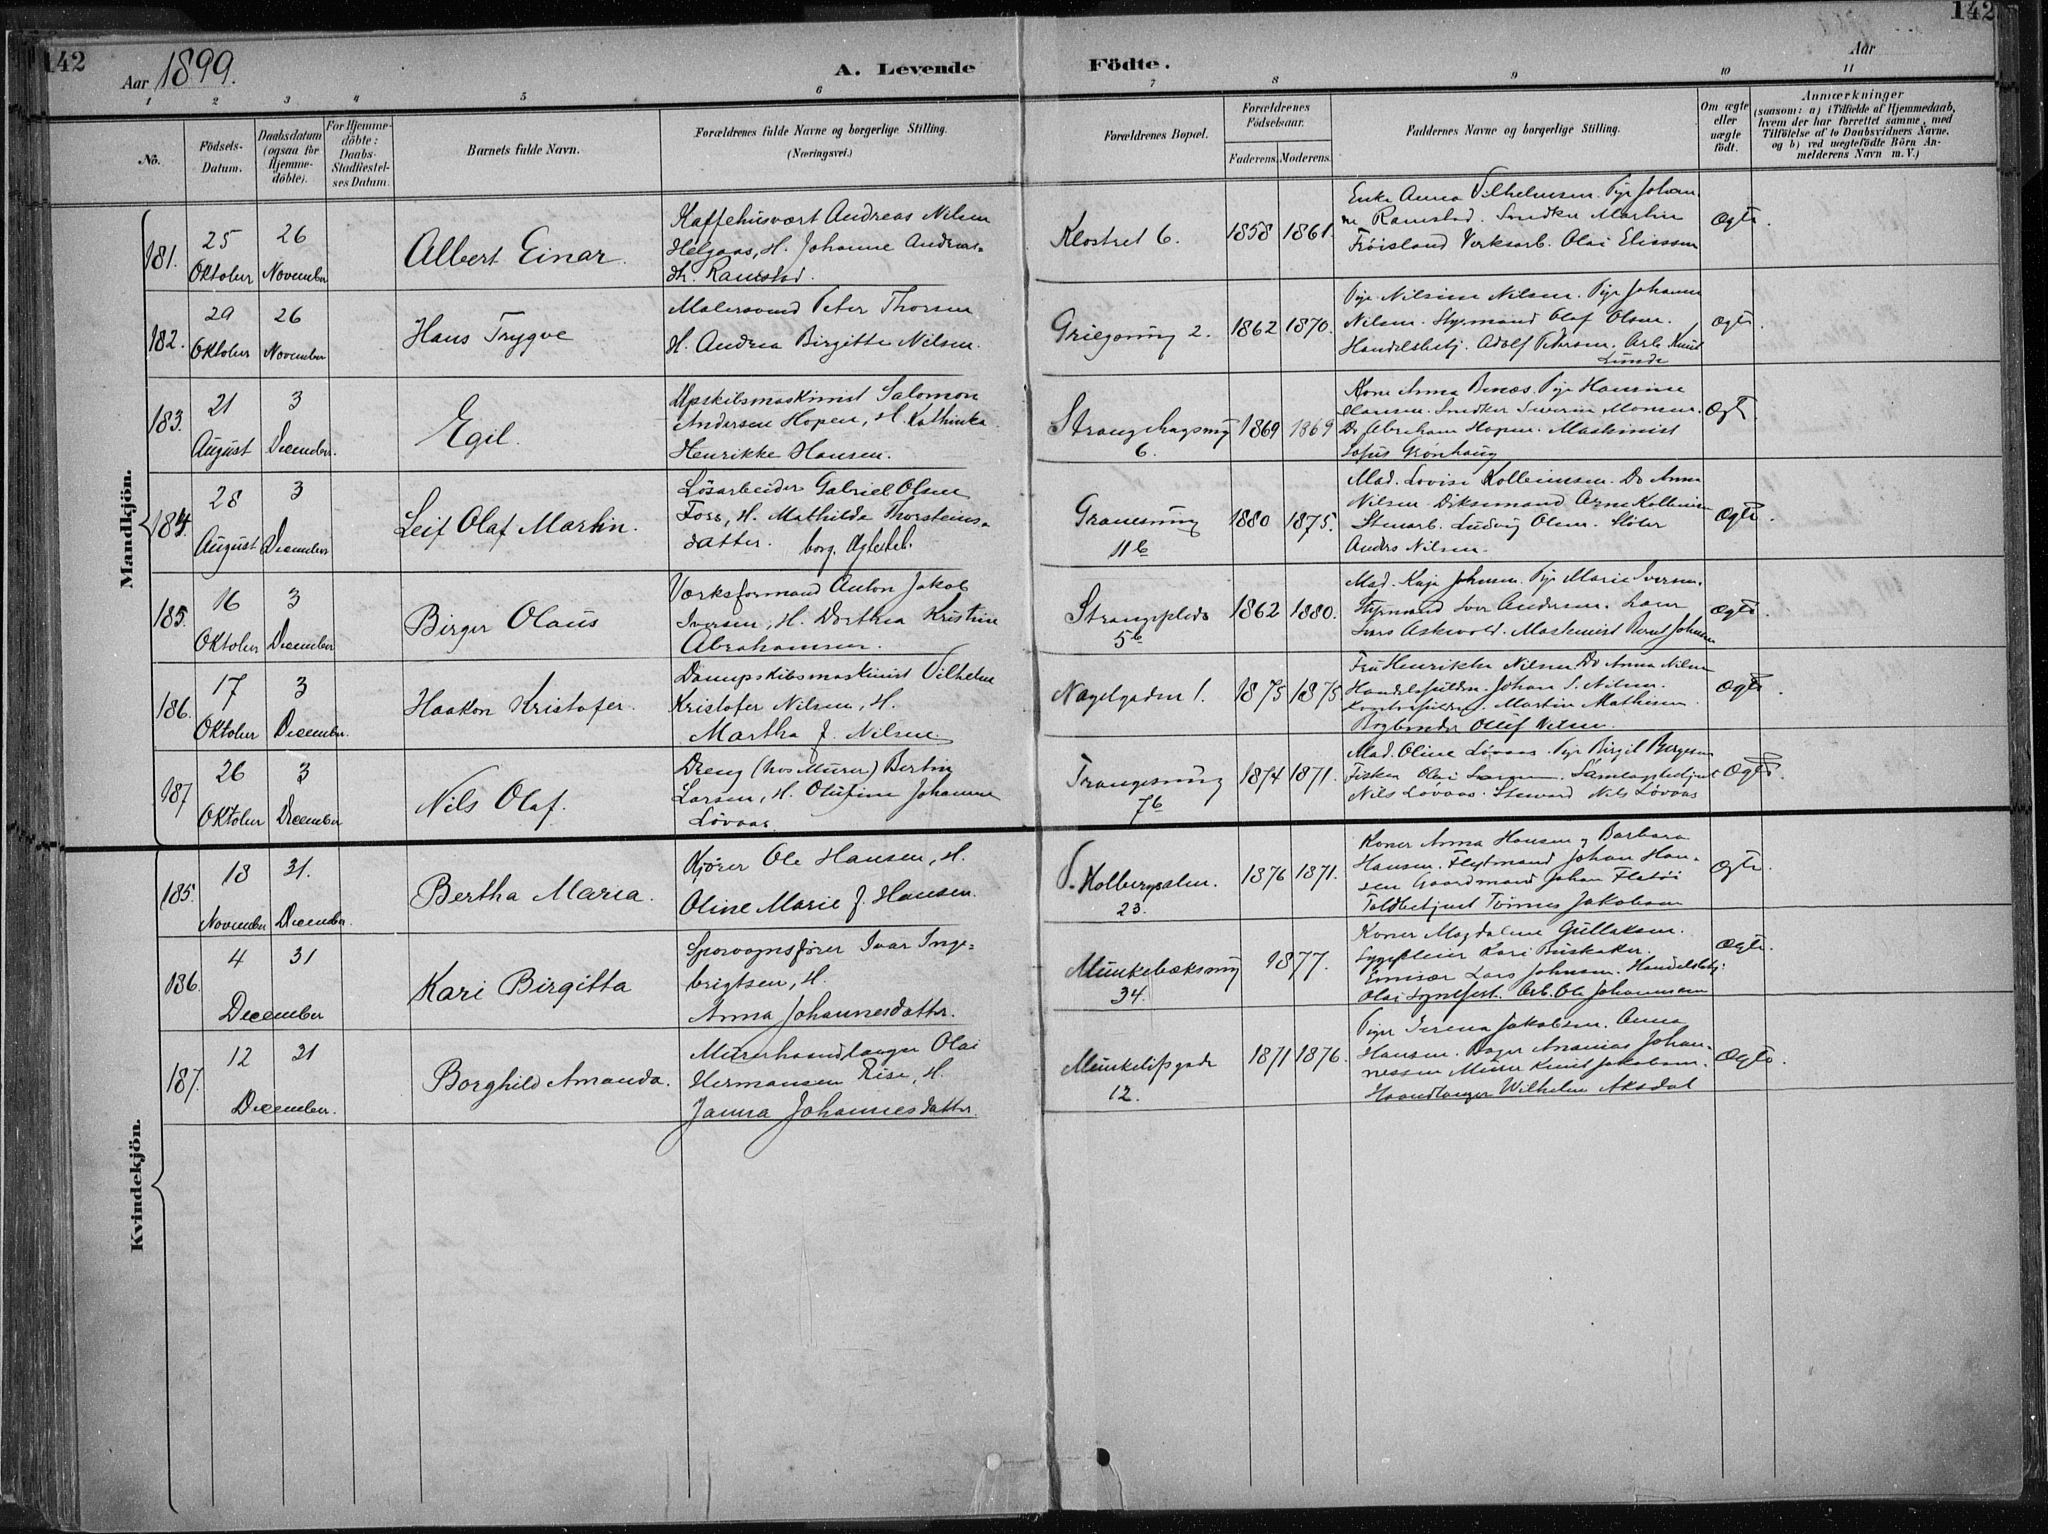 142
142
Aar 1899.
A. Levende
Födte.
Aar
1 2 3 4 5 6 7 8 9 10 11
No.
Födsels-
Datum.
Daabsdatum
(ogsaa for
Hjemme-
döbte).
For Hjemme-
döbte:
Daabs-
Stadfæstel-
ses Datum.
Barnets fulde Navn.
Forældrenes fulde Navne og borgerlige Stilling.
(Næringsvei.)
Forældrenes Bopæl.
Forældrenes
Födselsaar.
Faderens.
Moderens.
Faddernes Navne og borgerlige Stilling.
Om ægte
eller
uægte
födt.
Anmærkninger
(saasom: a) i Tilfælde af Hjemmedaab,
hvem der har forrettet samme, med
Tilföielse af to Daabsvidners Navne,
og b) ved uægtefödte Börn An-
melderens Navn m. V.)
Mandkjön.
181.
25
Oktober
26
November
Albert Einar.
Kaffehusvært Andreas Nilsen
Helgaas, H. Johanne Andreas-
dtr. Ramstad.
Klostret 6.
1858
1861.
Enke Anna Vilhelmsen. Pige Johan-
ne Ramstad. Snedker Martin
Frøisland Verksarb. Olai Eliassen
Ægte.
182.
29
Oktober
26
November
Hans Trygve
Malersvend Peter Thorsen
H. Andrea Birgitte Nilsen.
Griegsmug 2.
1862
1870.
Pige Nilsine Nilsen. Pige Johanne
Nilsen. Styrmand Olaf Olsen.
Handelsbetj. Adolf Petersen. Arb. Knut
Lunde
Ægte
183.
21
August
3
December.
Egil.
Dpskibsmaskinist Salomon
Andersen Hopen, H. Kathinka
Henrikke Hansen.
Strangehagsmug
6.
1869
1869
Kone Anna Pige Hansine
Hansen. Snedker Severin Monsen.
Do Abraham Hopen. Maskinist
Sofus Grønhaug
Ægte
184.
28
August
3
December
Leif Olaf Martin.
Løsarbeider Gabriel Olsen
Foss, H. Mathilde Thorsteins-
datter. borg. Ægteskab.
Granesmug
11b
1880
1875.
Mad. Lovise Kolbeinsen. Do Anna
Nilsen. Arne Kolbein
Stenarb. Ludvig Olsen.
Anders Nilsen.
Ægte.
185.
16
Oktober
3
December
Birger Olaus
Værksformand Anton Jakob
Iversen, H. Dorthea Kristine
Abrahamsen.
Strangeplads
5b
1862
1880.
Mad. Kaja Johnsen. Pige Marie Iversen.
Styrmand Iver Andersen.
Lars Askvold. Maskinist Bernt Johnsen
Ægte.
186.
17
Oktober
3
December.
Haakon Kristofer.
Dampskibsmaskinist Vilhelm
Kristofer Nilsen, H.
Martha J. Nilsen
Nagelgaden 1.
1875
1875
Fru Henrikke Nilsen. Do Anna Nilsen
Handelsfuldm. Johan S. Nilsen.
Kontorfuldm. Martin Mathisen.
Bogbinder Oluf Nilsen.
Ægte
187
26
Oktober
3
December
Nils Olaf.
Dreng (hos Murer) Bertin
Larsen, H. Olufine Johanne
Løvaas.
Trangesmug
7b
1874
1871.
Mad. Oline Løvaas. Pige Birgit Bergesen
Fisker Olai Larsen. Samlagsbetjent
Nils Løvaas. Steward Nils Løvaas
Ægte.
Kvindekjön.
185.
18
November
31.
December.
Bertha Maria.
Kjører Ole Hansen, H.
Oline Marie J. Hansen.
V. Holbergsalm.
23.
1876
1871.
Koner Anna Hansen, Barbara
Hansen. Johan Han-
sen Gaardmand Johan Flatøi
Toldbetjent Tønnes Jakobsen
Ægte.
186.
4
December
31
Kari Birgitta
Sporvognsfører Ivar Inge-
brigtsen, H.
Anna Johannesdatter.
Munkebæksmug
34.
1877.
Koner Magdalene Gullaksen.
Sygepleier Kari Buskaker.
Emissær Lars Johnsen. Handelsbetj.
Olai Synesfest. Arb. Ole Johannesen
Ægte.
187.
12
December.
31
Borghild Amanda.
Murerhaandlanger Olai
Hermansen Rise, H.
Janna Johannesdatter.
Munkelifsgade
12.
1871
1876.
Piger Serena Jakobsen. Anna
Hansen. Bager Ananias Johan-
nessen Murer Knut Jakobsen.
Haandlanger Wilhelm Aksdal
Ægte.